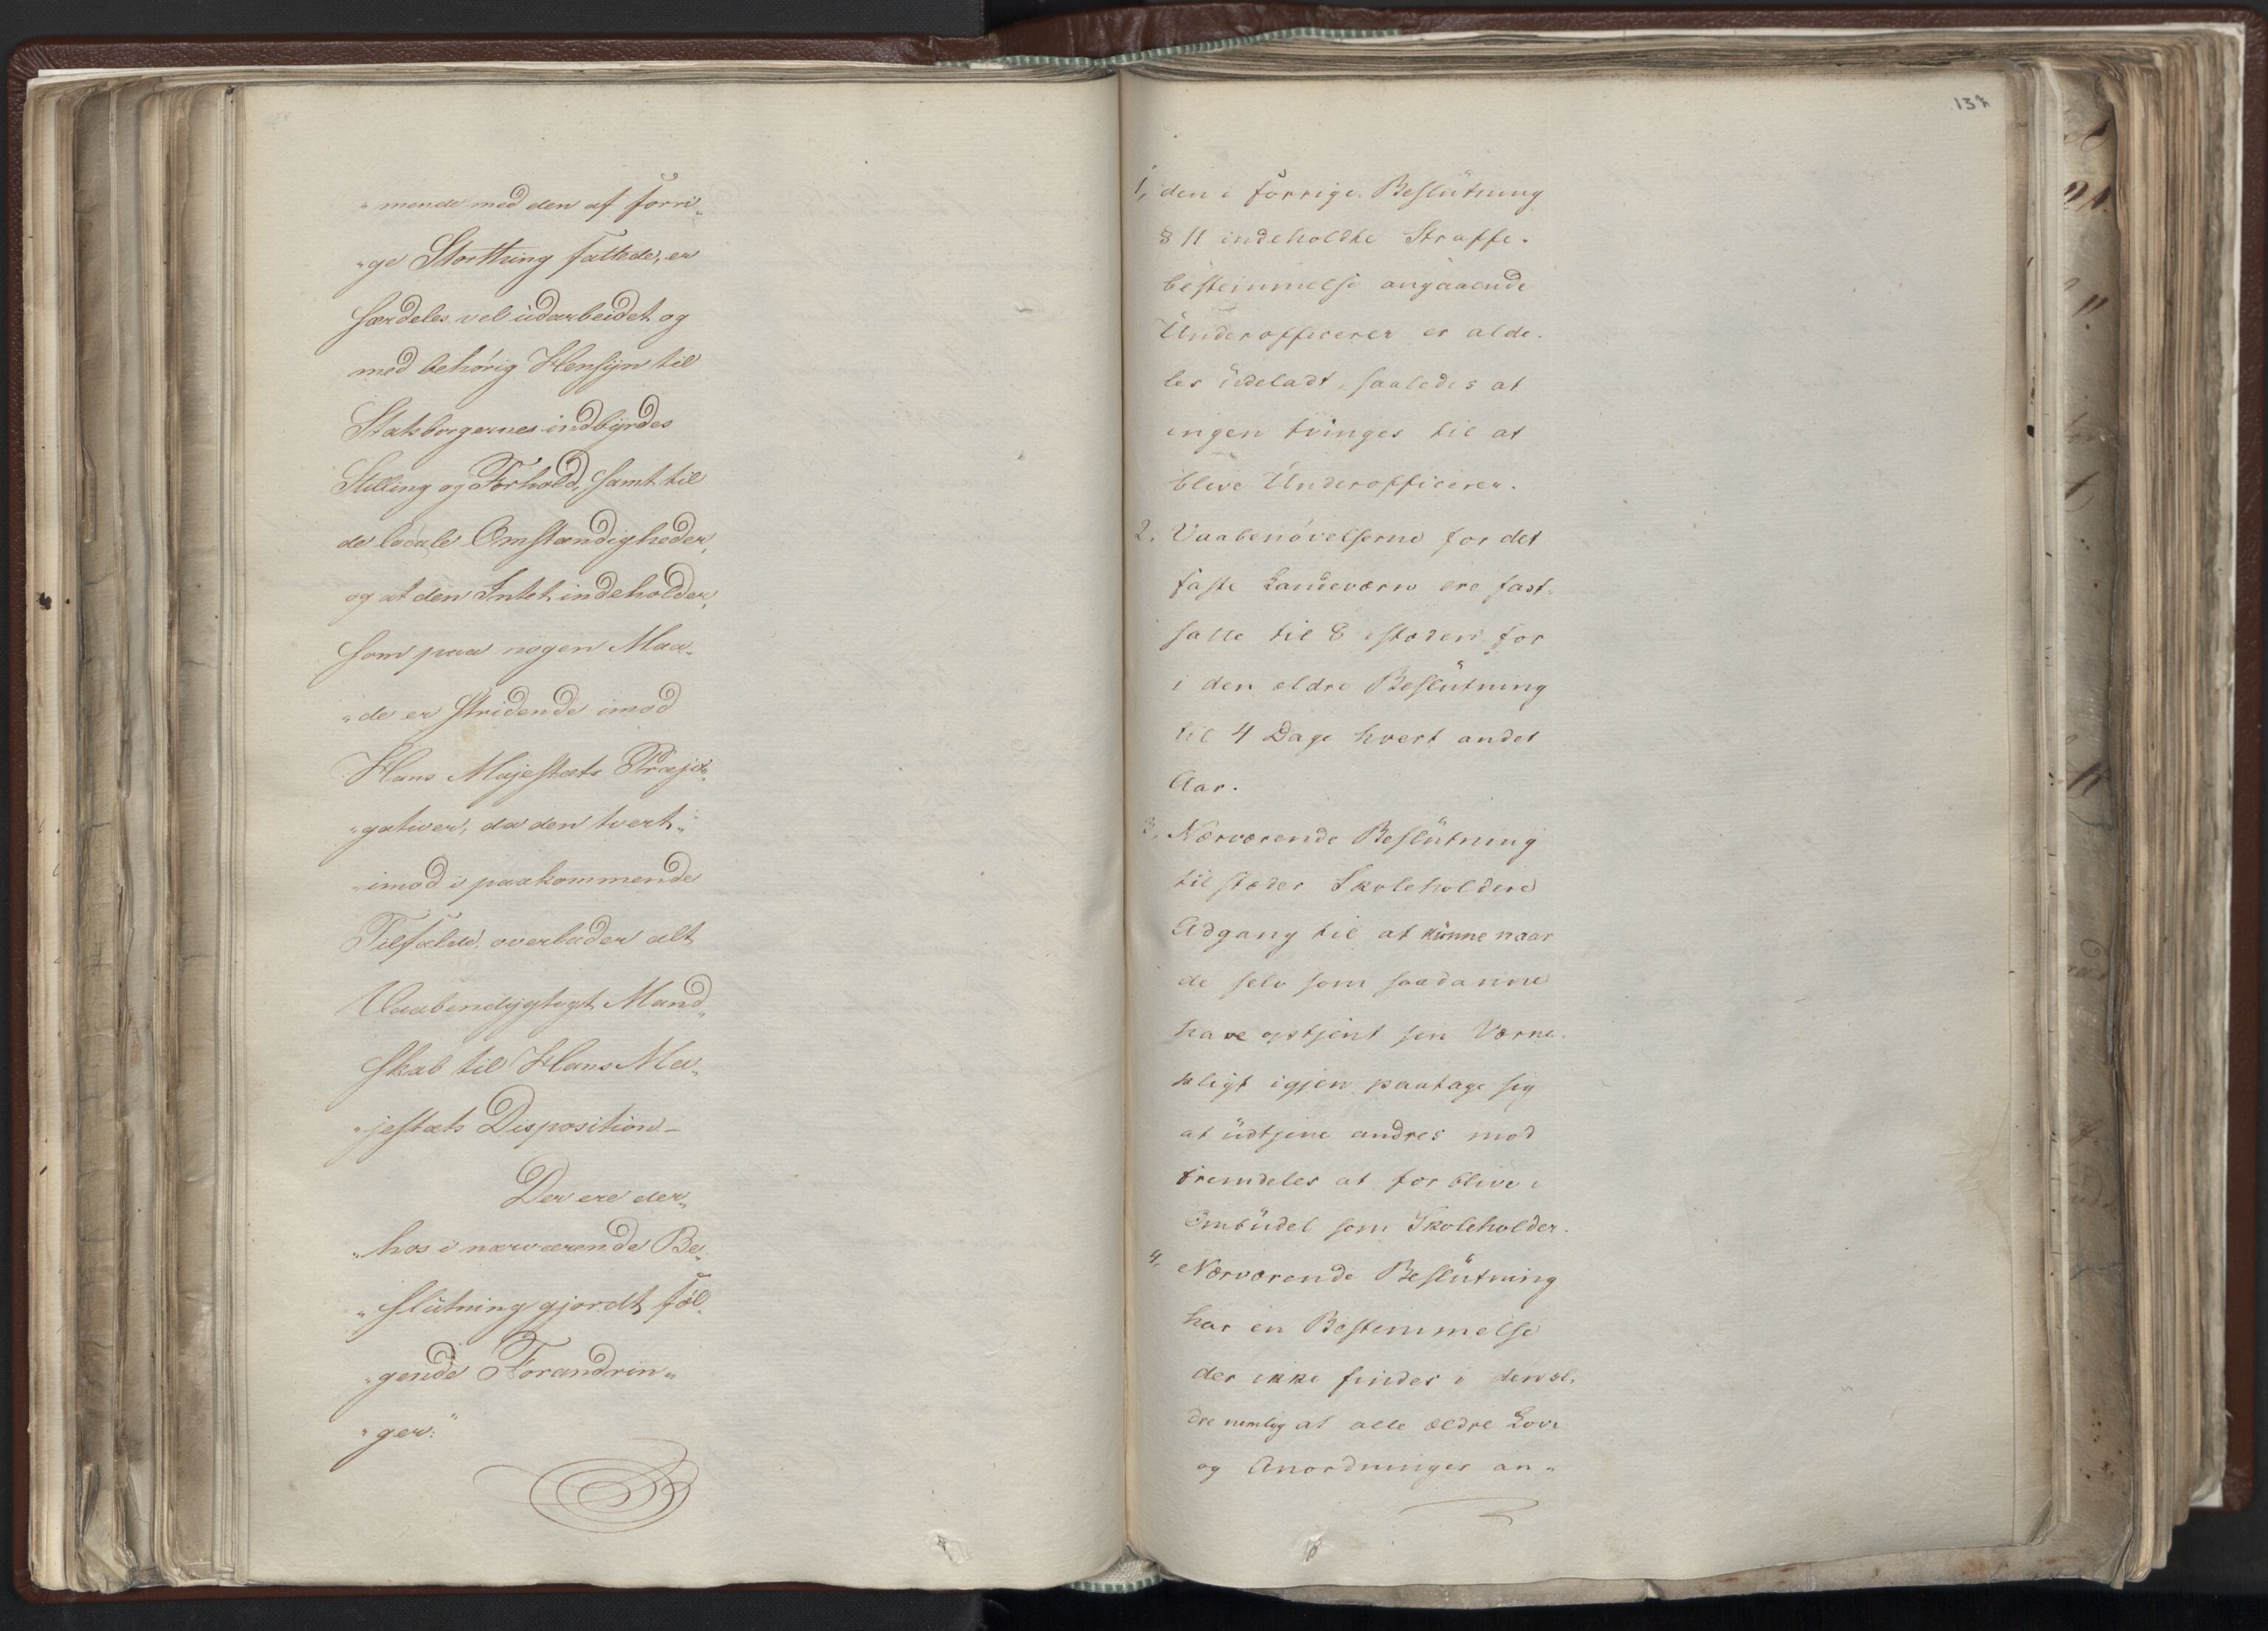 „mende med den af forri„
„ge Storthing fattede, er
særdeles vel udarbeidet og
med behørig Hensyn til
Statsborgernes indbyrdes
Stilling og Forhold, samt til
de locale Omstændigheder,
og at den Intet indeholder,
som paa nogen Maa„
„de er stridende imod
Hans Majestæts Præjo„
„gativer, da den tvert„
„imod i paakommende
Tilfælde, overlader alt
Vaabendygtigt Mand„
skab til Hans Ma„
„jestæts Disposition –
Der ere der„
„hos i nærværende Be„
„slutning gjordt føl„
„gende Forandrin„
„ger:"
137
1, den i forrige Beslutning
§ 11 indeholdte Straffe„
bestemmelse angaaende
Underofficerer er alde„
les udeladt, saaledes at
ingen tvinges til at
blive Underofficerer.
2. Vaabenøvelserne for det
faste Landeværn ere fast„
satte til 8 istæden for
i den ældre Beslutning
til 4 Dage hvert andet
Aar.
3, Nærværende Beslutning
tilstæder Skoleholdere
Adgang til at kunne naar
de selv som saadanne
have astjent sin Værne„
pligt igjen paatage sig
at udtjene andres mod
fremdeles at forblive i
Ombudet som Skoleholder.
4, Nærværende Beslutning
har en Bestemmelse
der ikke findes i den æl„
dre nemlig at alle ældre Love
og Anordninger an„